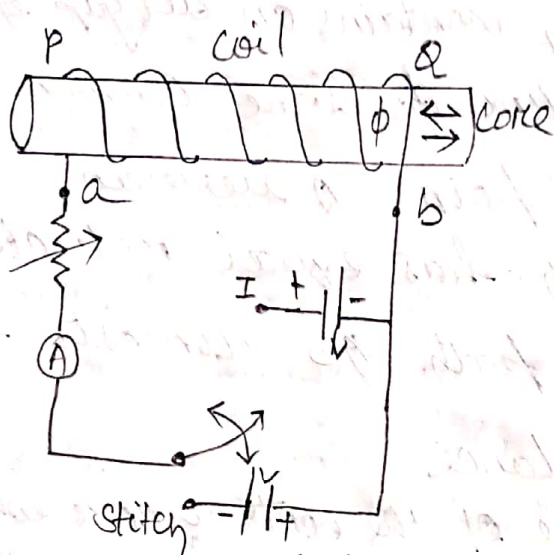 P coil Q
ϕ core
a
b
I + -
V
A
V
stitch - +